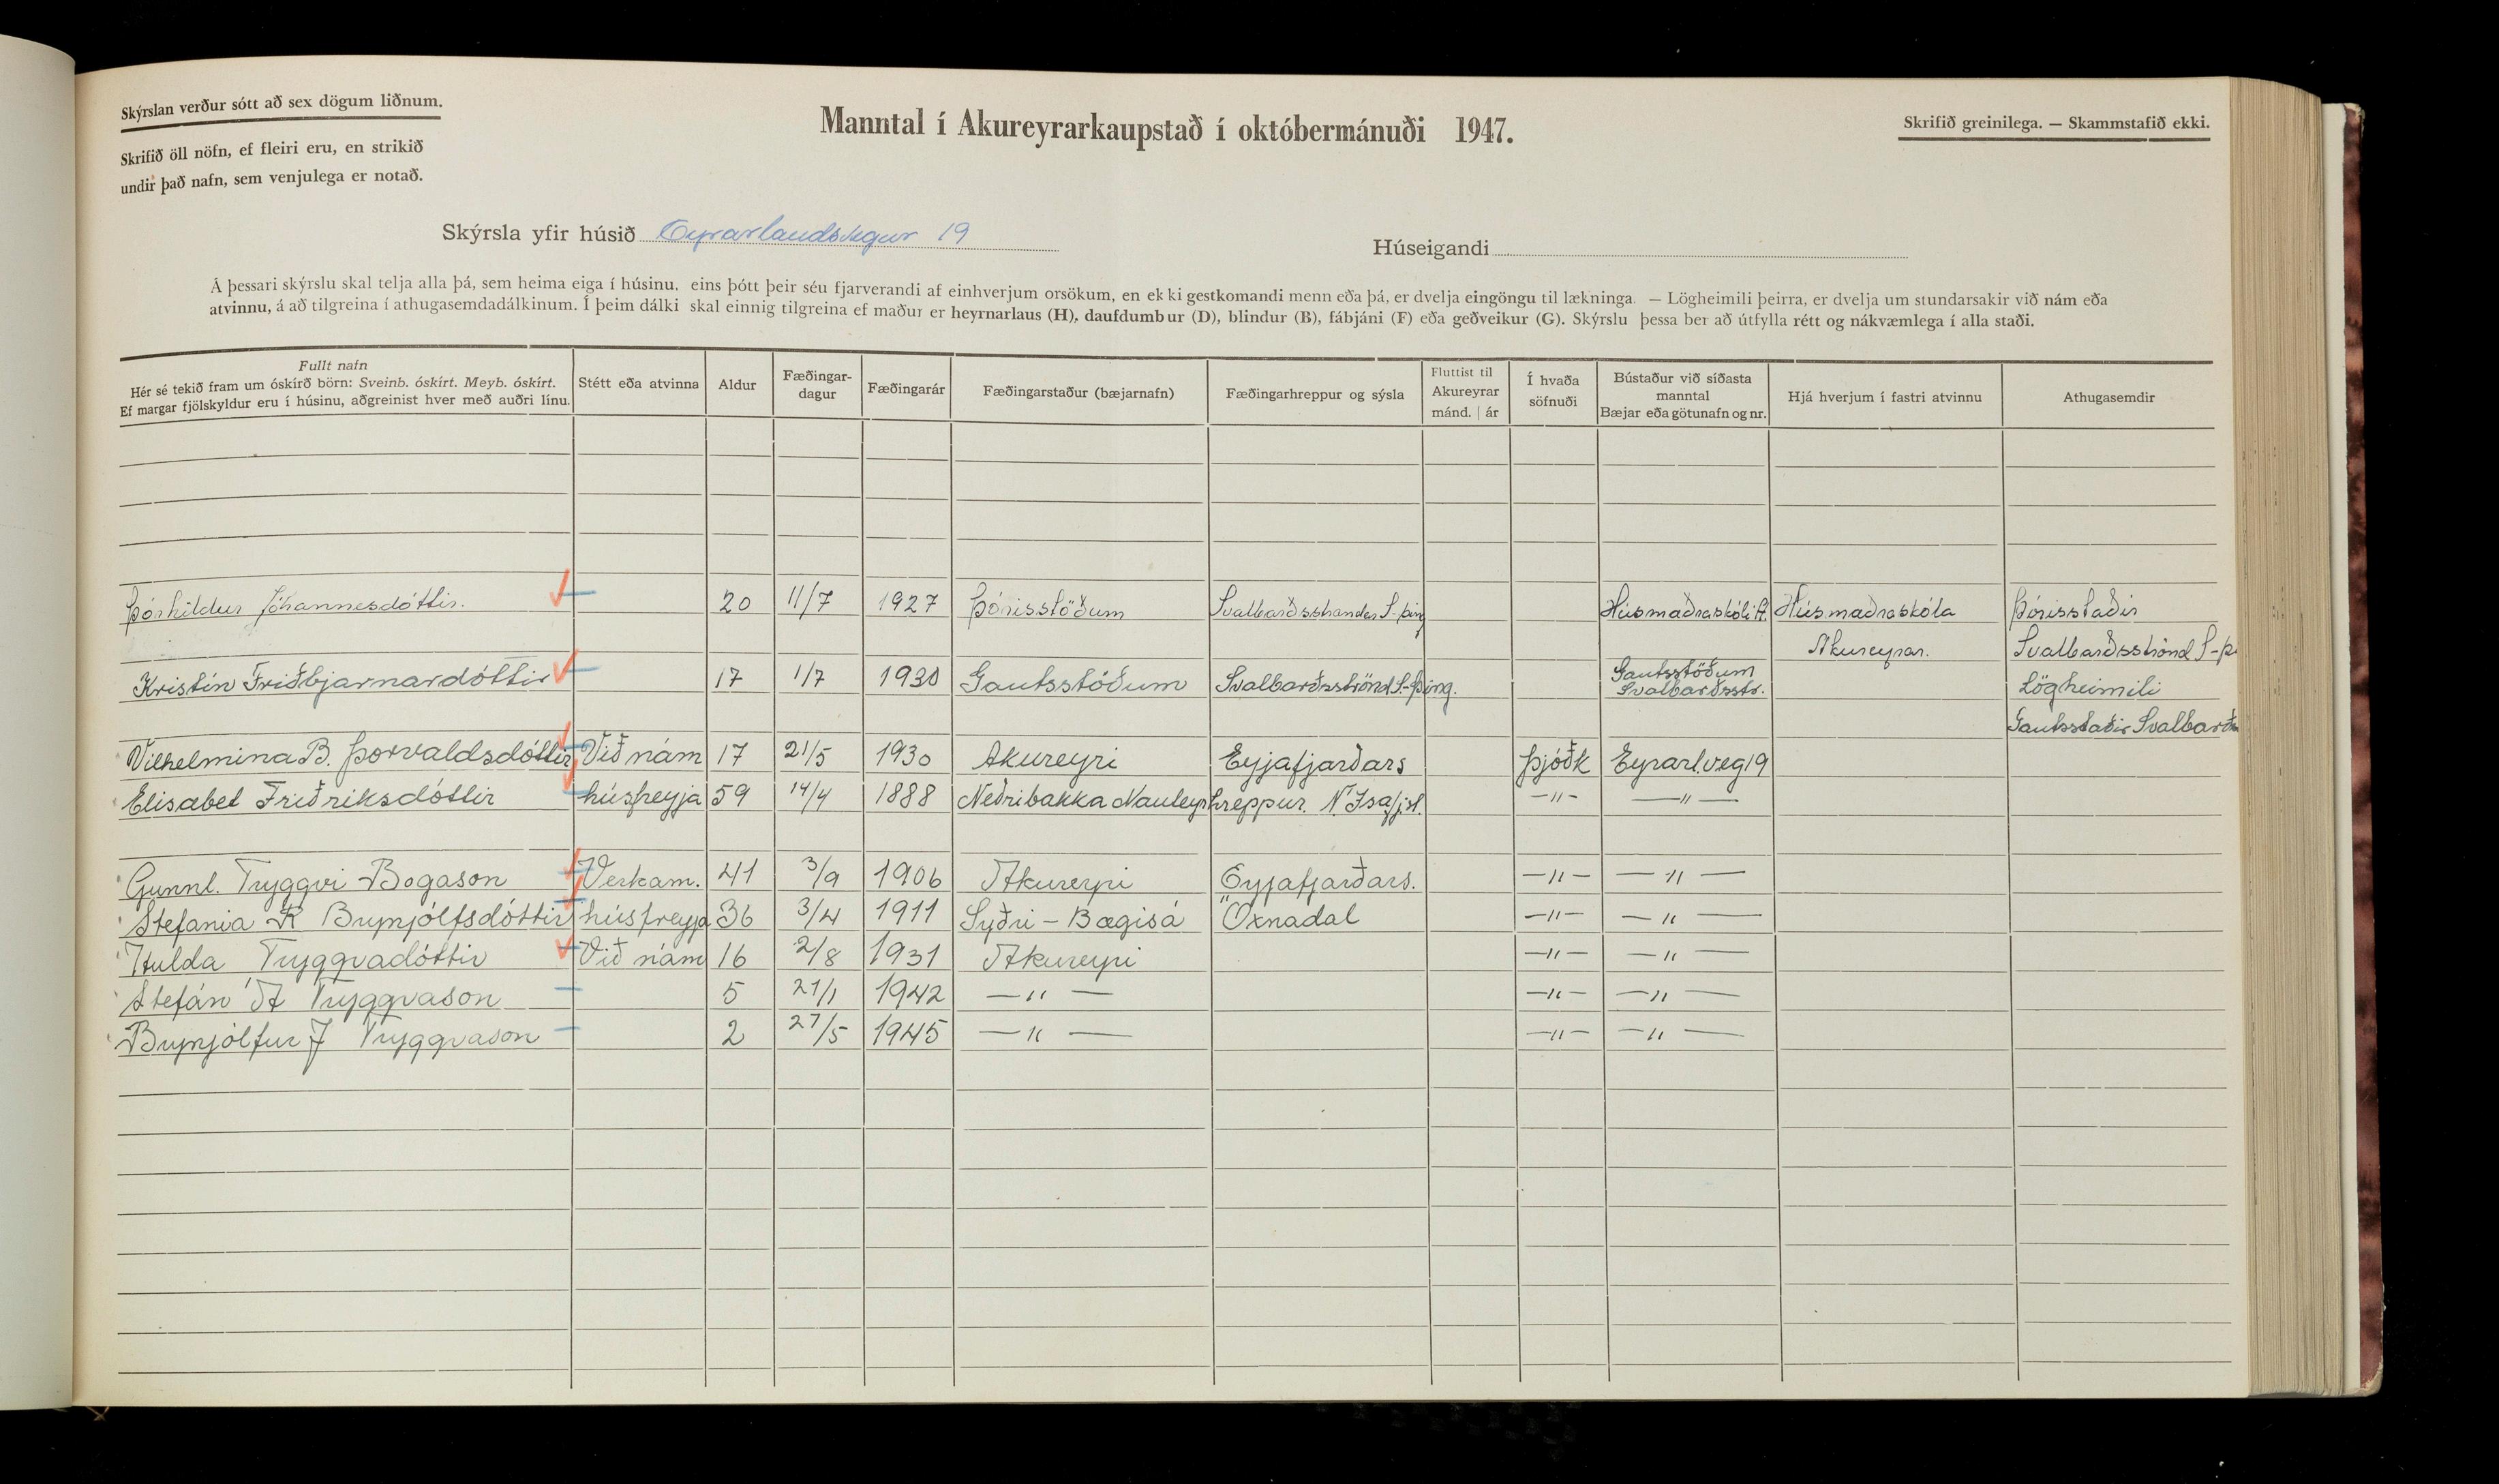 Skýrslan verður sótt að sex dögum liðnum.
Skrifið öll nöfn, ef fleiri eru, en strikið
undir það nafn, sem venjulega er notað.
Manntal í Akureyrarkaupstað í októbermánuði 1947.
Skrifið greinilega. — Skammstafið ekki.
Skýrsla yfir húsið Eyrarlandsvegur 19
Húseigandi
Á þessari skýrslu skal telja alla þá, sem heima eiga í húsinu, eins þótt þeir séu fjarverandi af einhverjum orsökum, en ekki gestkomandi menn eða þá, er dvelja eingöngu til lækninga. — Lögheimili þeirra, er dvelja um stundarsakir við nám eða
atvinnu, á að tilgreina í athugasemdadálkinum. Í þeim dálki skal einnig tilgreina ef maður er heyrnarlaus (H), daufdumbur (D), blindur (B), fábjáni (F) eða geðveikur (G). Skýrslu þessa ber að útfylla rétt og nákvæmlega í alla staði.
Fullt nafn
Hér sé tekið fram um óskírð börn: Sveinb. óskírt. Meyb. óskírt.
Ef margar fjölskyldur eru í húsinu, aðgreinist hver með auðri línu.
Stétt eða atvinna
Aldur
Fæðingar-
dagur
Fæðingarár
Fæðingarstaður (bæjarnafn)
Fæðingarhreppur og sýsla
Fluttist til
Akureyrar
mánd. | ár
Í hvaða
söfnuði
Bústaður við síðasta
manntal
Bæjar eða götunafn og nr.
Hjá hverjum í fastri atvinnu
Athugasemdir
Þórhildur Jóhannesdóttir. 20 11/7 1927 Þórisstöðum Svalbarðsstrandar S-þing Húsmæðraskóli A. Húsmæðraskóla Þórisstaðir
Akureyrar. Svalbarðsströnd S-þ
Kristín Friðbjarnardóttir 17 1/7 1930 Gautsstöðum Svalbarðsströnd S-þing. Gautsstöðum Svalbarðsstr. Lögheimili
Gautsstaðir Svalbarðs
Vilhelmina B. Þorvaldsdóttir Við nám 17 21/5 1930 Akureyri Eyjafjarðars Þjóðk Eyrarl.veg 19
Elisabet Friðriksdóttir húsfreyja 59 14/4 1888 Neðribakka Nauteyrhreppur. N. Ísafj.s. —"— —"—
Gunnl. Tryggvi Bogason Verkam. 41 3/9 1906 Akureyri Eyjafjarðars. —"— —"—
Stefania K Brynjólfsdóttir húsfreyja 36 3/4 1911 Syðri-Bægisá Öxnadal —"— —"—
Hulda Tryggvadóttir Við nám 16 2/8 1931 Akureyri —"— —"—
Stefán A Tryggvason 5 21/1 1942 —"— —"— —"—
Brynjólfur J Tryggvason 2 27/5 1945 —"— —"— —"—